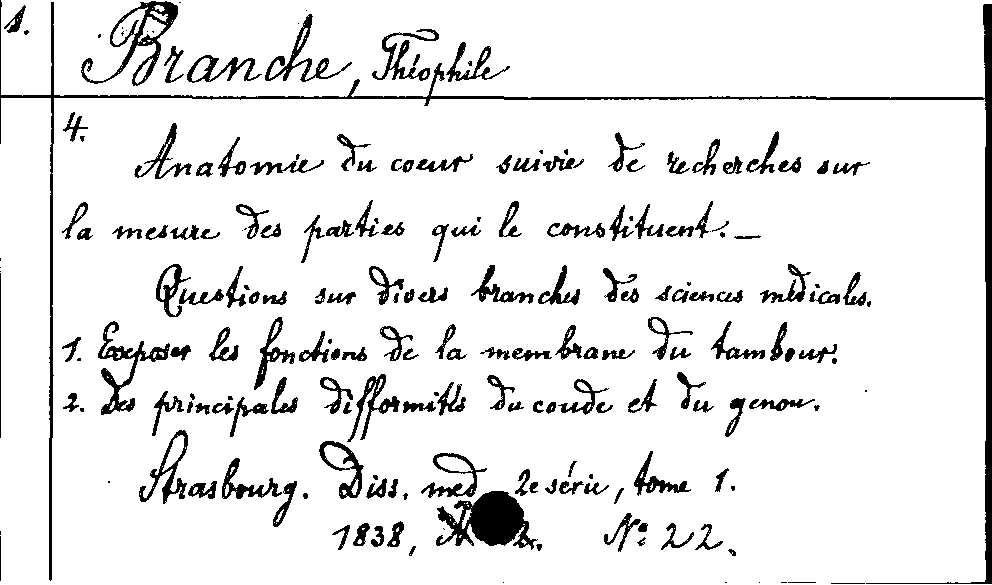 1.
Branche, Théophile
4.
Anatomie du coeur suivie de recherches sur
la mesure des parties qui le constituent. _
Questions sur divers branches des sciences médicales.
1. Exposer les fonctions de la membrane du tambour.
2. Des principales difformités du coude et du genou.
Strasbourg. Diss. med 2e série, tome 1.
1838, No 22.